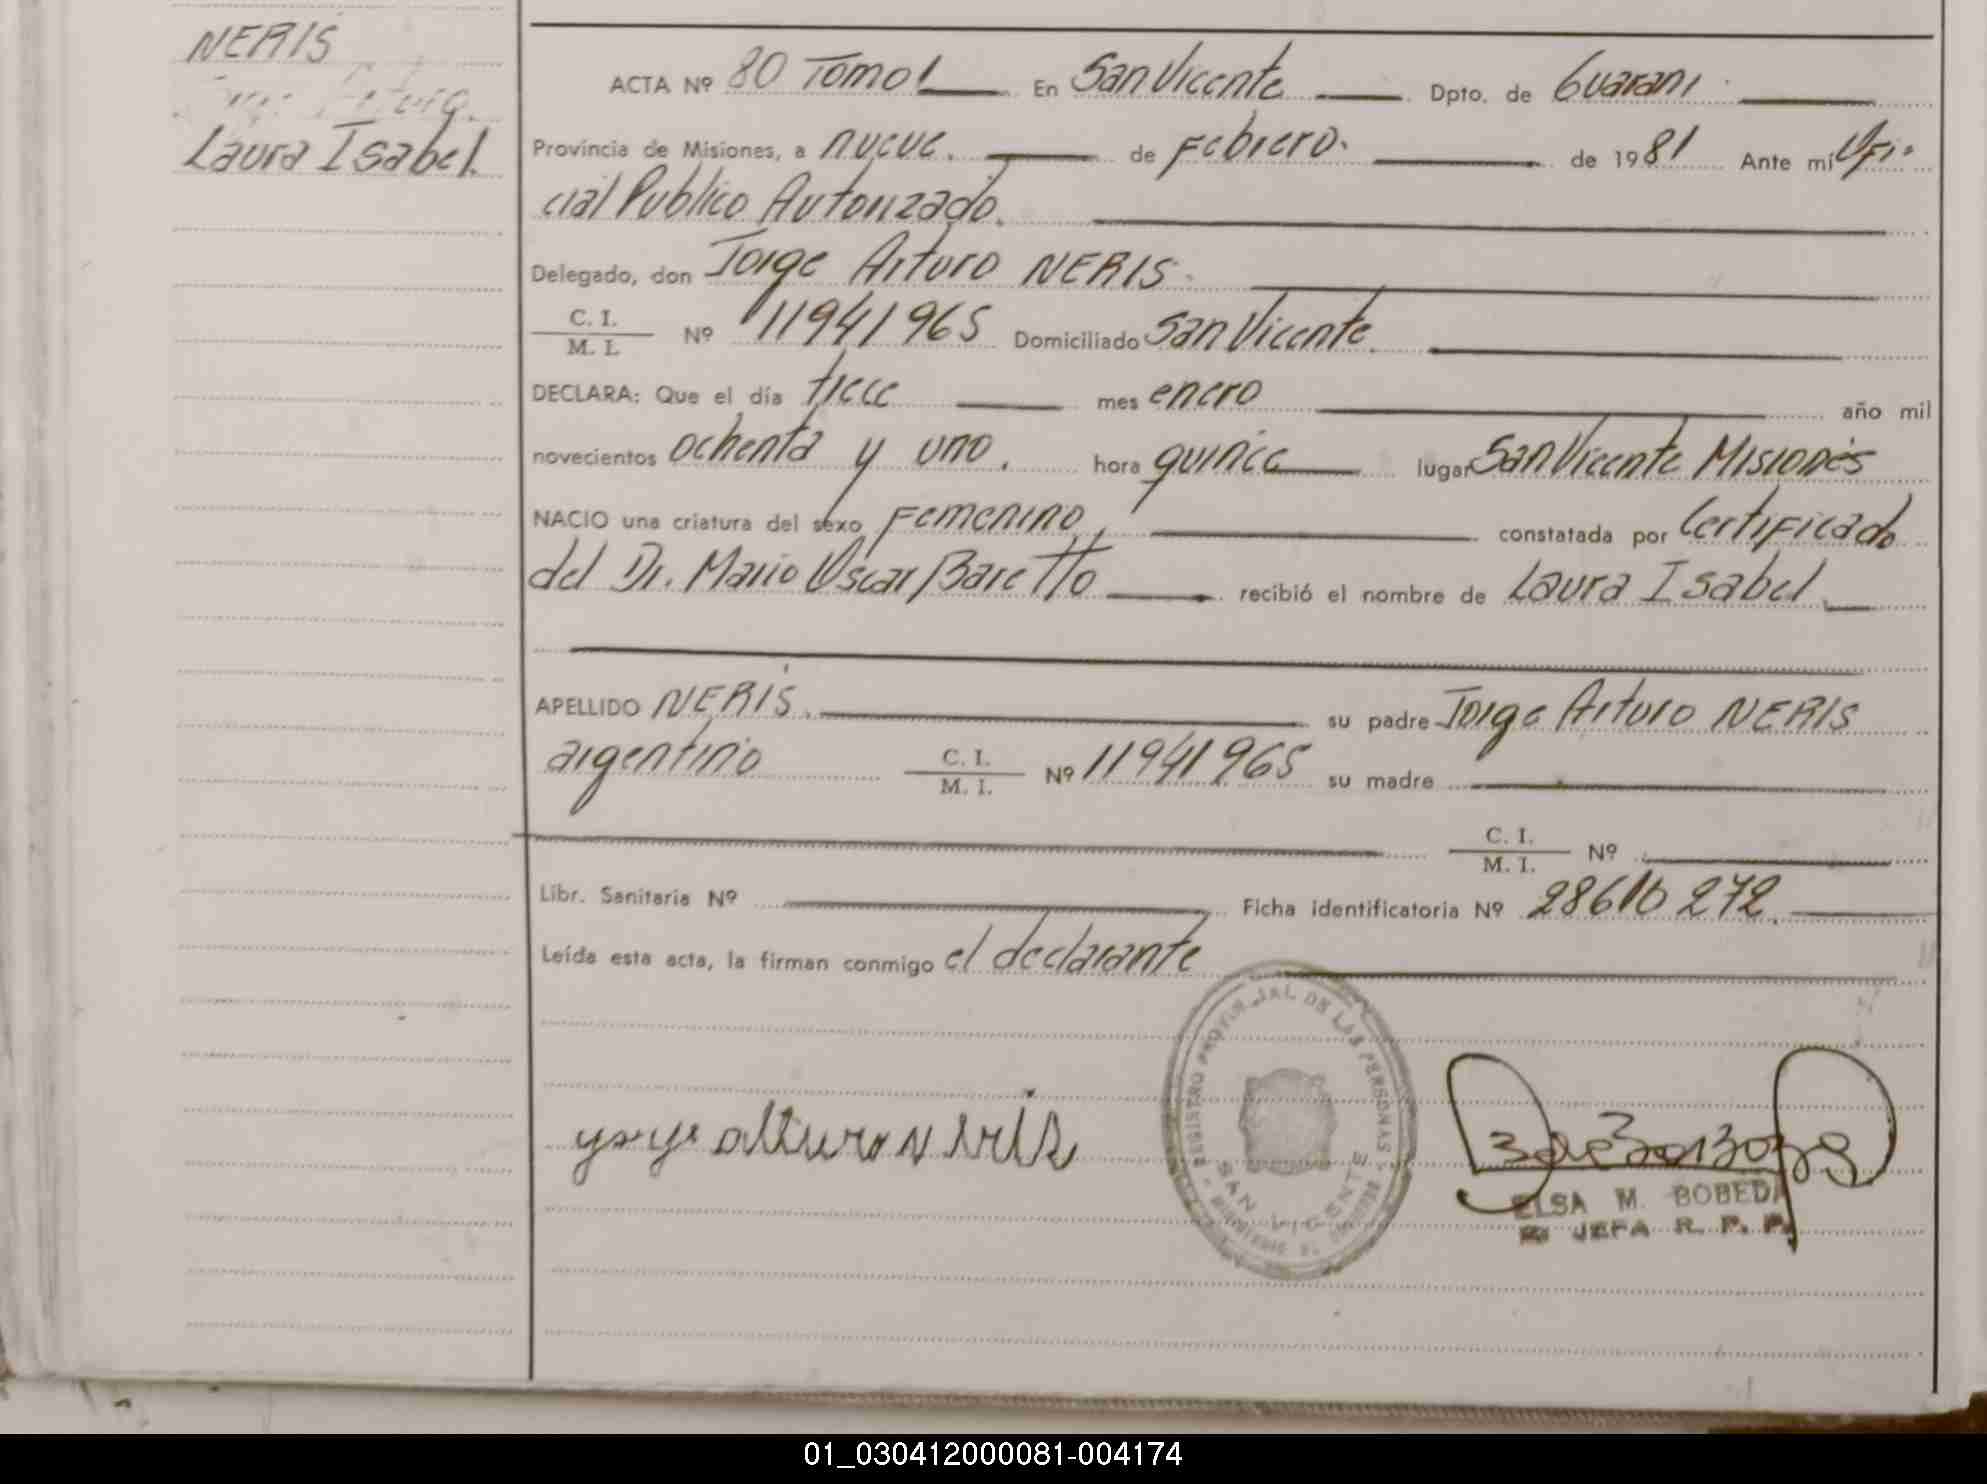 NERIS
Laura Isabel.
ACTA Nº 80 Tomo I En San Vicente Dpto. de Guarani
Provincia de Misiones, a nueve. de Febrero. de 1981 Ante mí Ofi-
cial Publico Autorizado.
Delegado, don Jorge Arturo NERIS.
C. I.
M. I. Nº 11941965 Domiciliado San Vicente.
DECLARA: Que el día trece mes enero año mil
novecientos ochenta y uno. hora quince lugar San Vicente Misiones
NACIO una criatura del sexo Femenino, constatada por Certificado
del Dr. Mario Oscar Baretto recibió el nombre de Laura Isabel
APELLIDO NERIS. su padre Jorge Arturo NERIS
argentino C. I.
M. I. Nº 11941965 su madre
C. I.
M. I. Nº
Libr. Sanitaria Nº Ficha identificatoria Nº 28610272.
Leída esta acta, la firman conmigo el declarante
REGISTRO PROVINCIAL DE LAS PERSONAS
SAN VICENTE
MINISTERIO DE GOBIERNO
ELSA M. BOBEDA
JEFA R. P. P.
01_030412000081-004174